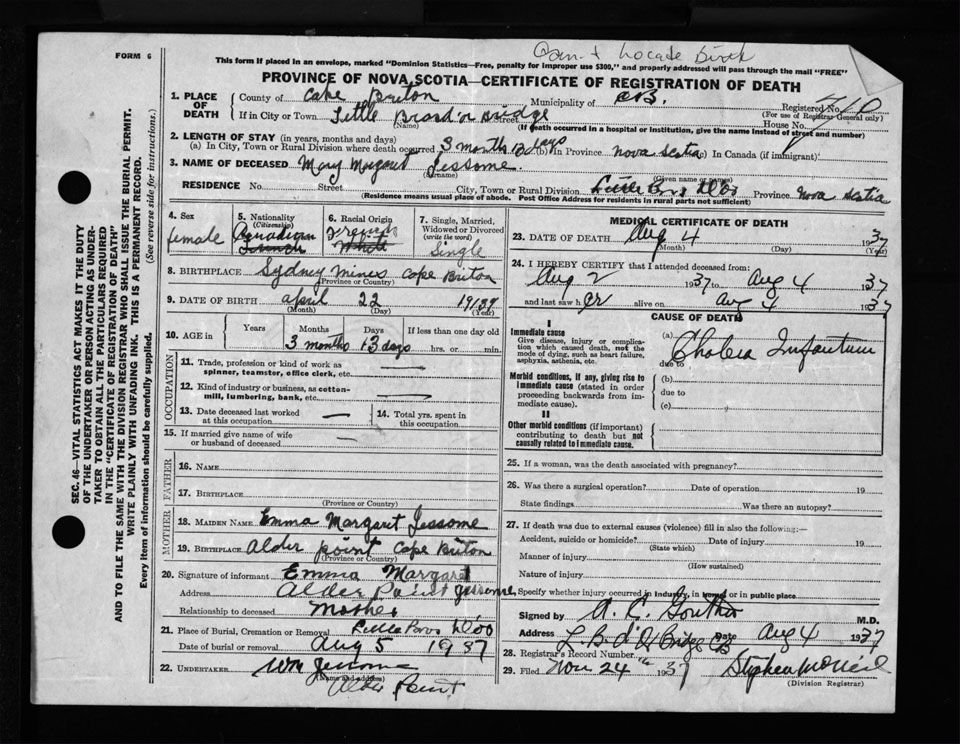 Can't Locate Birth
FORM 6
This form if placed in an envelope, marked "Dominion Statistics—Free, penalty for improper use $300," and properly addressed will pass through the mail "FREE"
PROVINCE OF NOVA SCOTIA—CERTIFICATE OF REGISTRATION OF DEATH
1. PLACE OF DEATH County of Cape Briton Municipality of CB. Registered No.
(For use of Registrar General only)
If in City or Town Little Brasd'or Bridge Street House No.
(Name) (If death occurred in a hospital or institution, give the name instead of street and number)
2. LENGTH OF STAY (in years, months and days)
(a) In City, Town or Rural Division where death occurred 3 months 13 days (b) In Province Nova Scotia (c) In Canada (if immigrant)
3. NAME OF DECEASED Mary Margaret Jessome.
(Surname) (Given name or names)
RESIDENCE No. Street City, Town or Rural Division Little Bras D'Or Province Nova Scotia
(Residence means usual place of abode. Post Office Address for residents in rural parts not sufficient)
4. Sex female
5. Nationality (Citizenship) Canadian French
6. Racial Origin French White
7. Single, Married, Widowed or Divorced (write the word) Single
8. BIRTHPLACE Sydney mines Cape Briton
(Province or Country)
9. DATE OF BIRTH april 22 1937
(Month) (Day) (Year)
10. AGE in Years Months 3 months Days 13 days If less than one day old hrs. or min.
OCCUPATION
11. Trade, profession or kind of work as spinner, teamster, office clerk, etc. —
12. Kind of industry or business, as cotton-mill, lumbering, bank, etc. —
13. Date deceased last worked at this occupation —
14. Total yrs. spent in this occupation
15. If married give name of wife or husband of deceased —
FATHER
16. NAME
17. BIRTHPLACE
(Province or Country)
MOTHER
18. MAIDEN NAME Emma Margaret Jessome
19. BIRTHPLACE Alder point Cape Briton
(Province or Country)
20. Signature of informant Emma Margaret Jessome
Address Alder Point
Relationship to deceased Mother
21. Place of Burial, Cremation or Removal Little Bras D'Or
Date of burial or removal Aug 5 1937
22. UNDERTAKER Wm Jessome
(Name and address)
Alder Point
MEDICAL CERTIFICATE OF DEATH
23. DATE OF DEATH Aug 4 1937
(Month) (Day) (Year)
24. I HEREBY CERTIFY that I attended deceased from:
Aug 2 1937 to Aug 4 1937
and last saw her alive on Aug 4 1937
CAUSE OF DEATH
I
Immediate cause
Give disease, injury or complication which caused death, not the mode of dying, such as heart failure, asphyxia, asthenia, etc.
(a) Cholera Infantum
due to
Morbid conditions, if any, giving rise to immediate cause (stated in order proceeding backwards from immediate cause).
(b)
due to
(c)
II
Other morbid conditions (if important) contributing to death but not causally related to immediate cause.
25. If a woman, was the death associated with pregnancy?
26. Was there a surgical operation? Date of operation 19
State findings Was there an autopsy?
27. If death was due to external causes (violence) fill in also the following:—
Accident, suicide or homicide? Date of injury 19
(State which)
Manner of injury
(How sustained)
Nature of injury
Specify whether injury occurred in industry, in home or in public place
Signed by M.D.
Address L. B. d'O Bridge CB Date Aug 4 1937
28. Registrar's Record Number
29. Filed Nov 24th 1937 Stephen McNeil
(Division Registrar)
SEC. 46—VITAL STATISTICS ACT MAKES IT THE DUTY
OF THE UNDERTAKER OR PERSON ACTING AS UNDER-
TAKER TO OBTAIN ALL THE PARTICULARS REQUIRED
IN THE "CERTIFICATE OF REGISTRATION OF DEATH"
AND TO FILE THE SAME WITH THE DIVISION REGISTRAR WHO SHALL ISSUE THE BURIAL PERMIT.
WRITE PLAINLY WITH UNFADING INK. THIS IS A PERMANENT RECORD.
Every item of information should be carefully supplied. (See reverse side for instructions.)